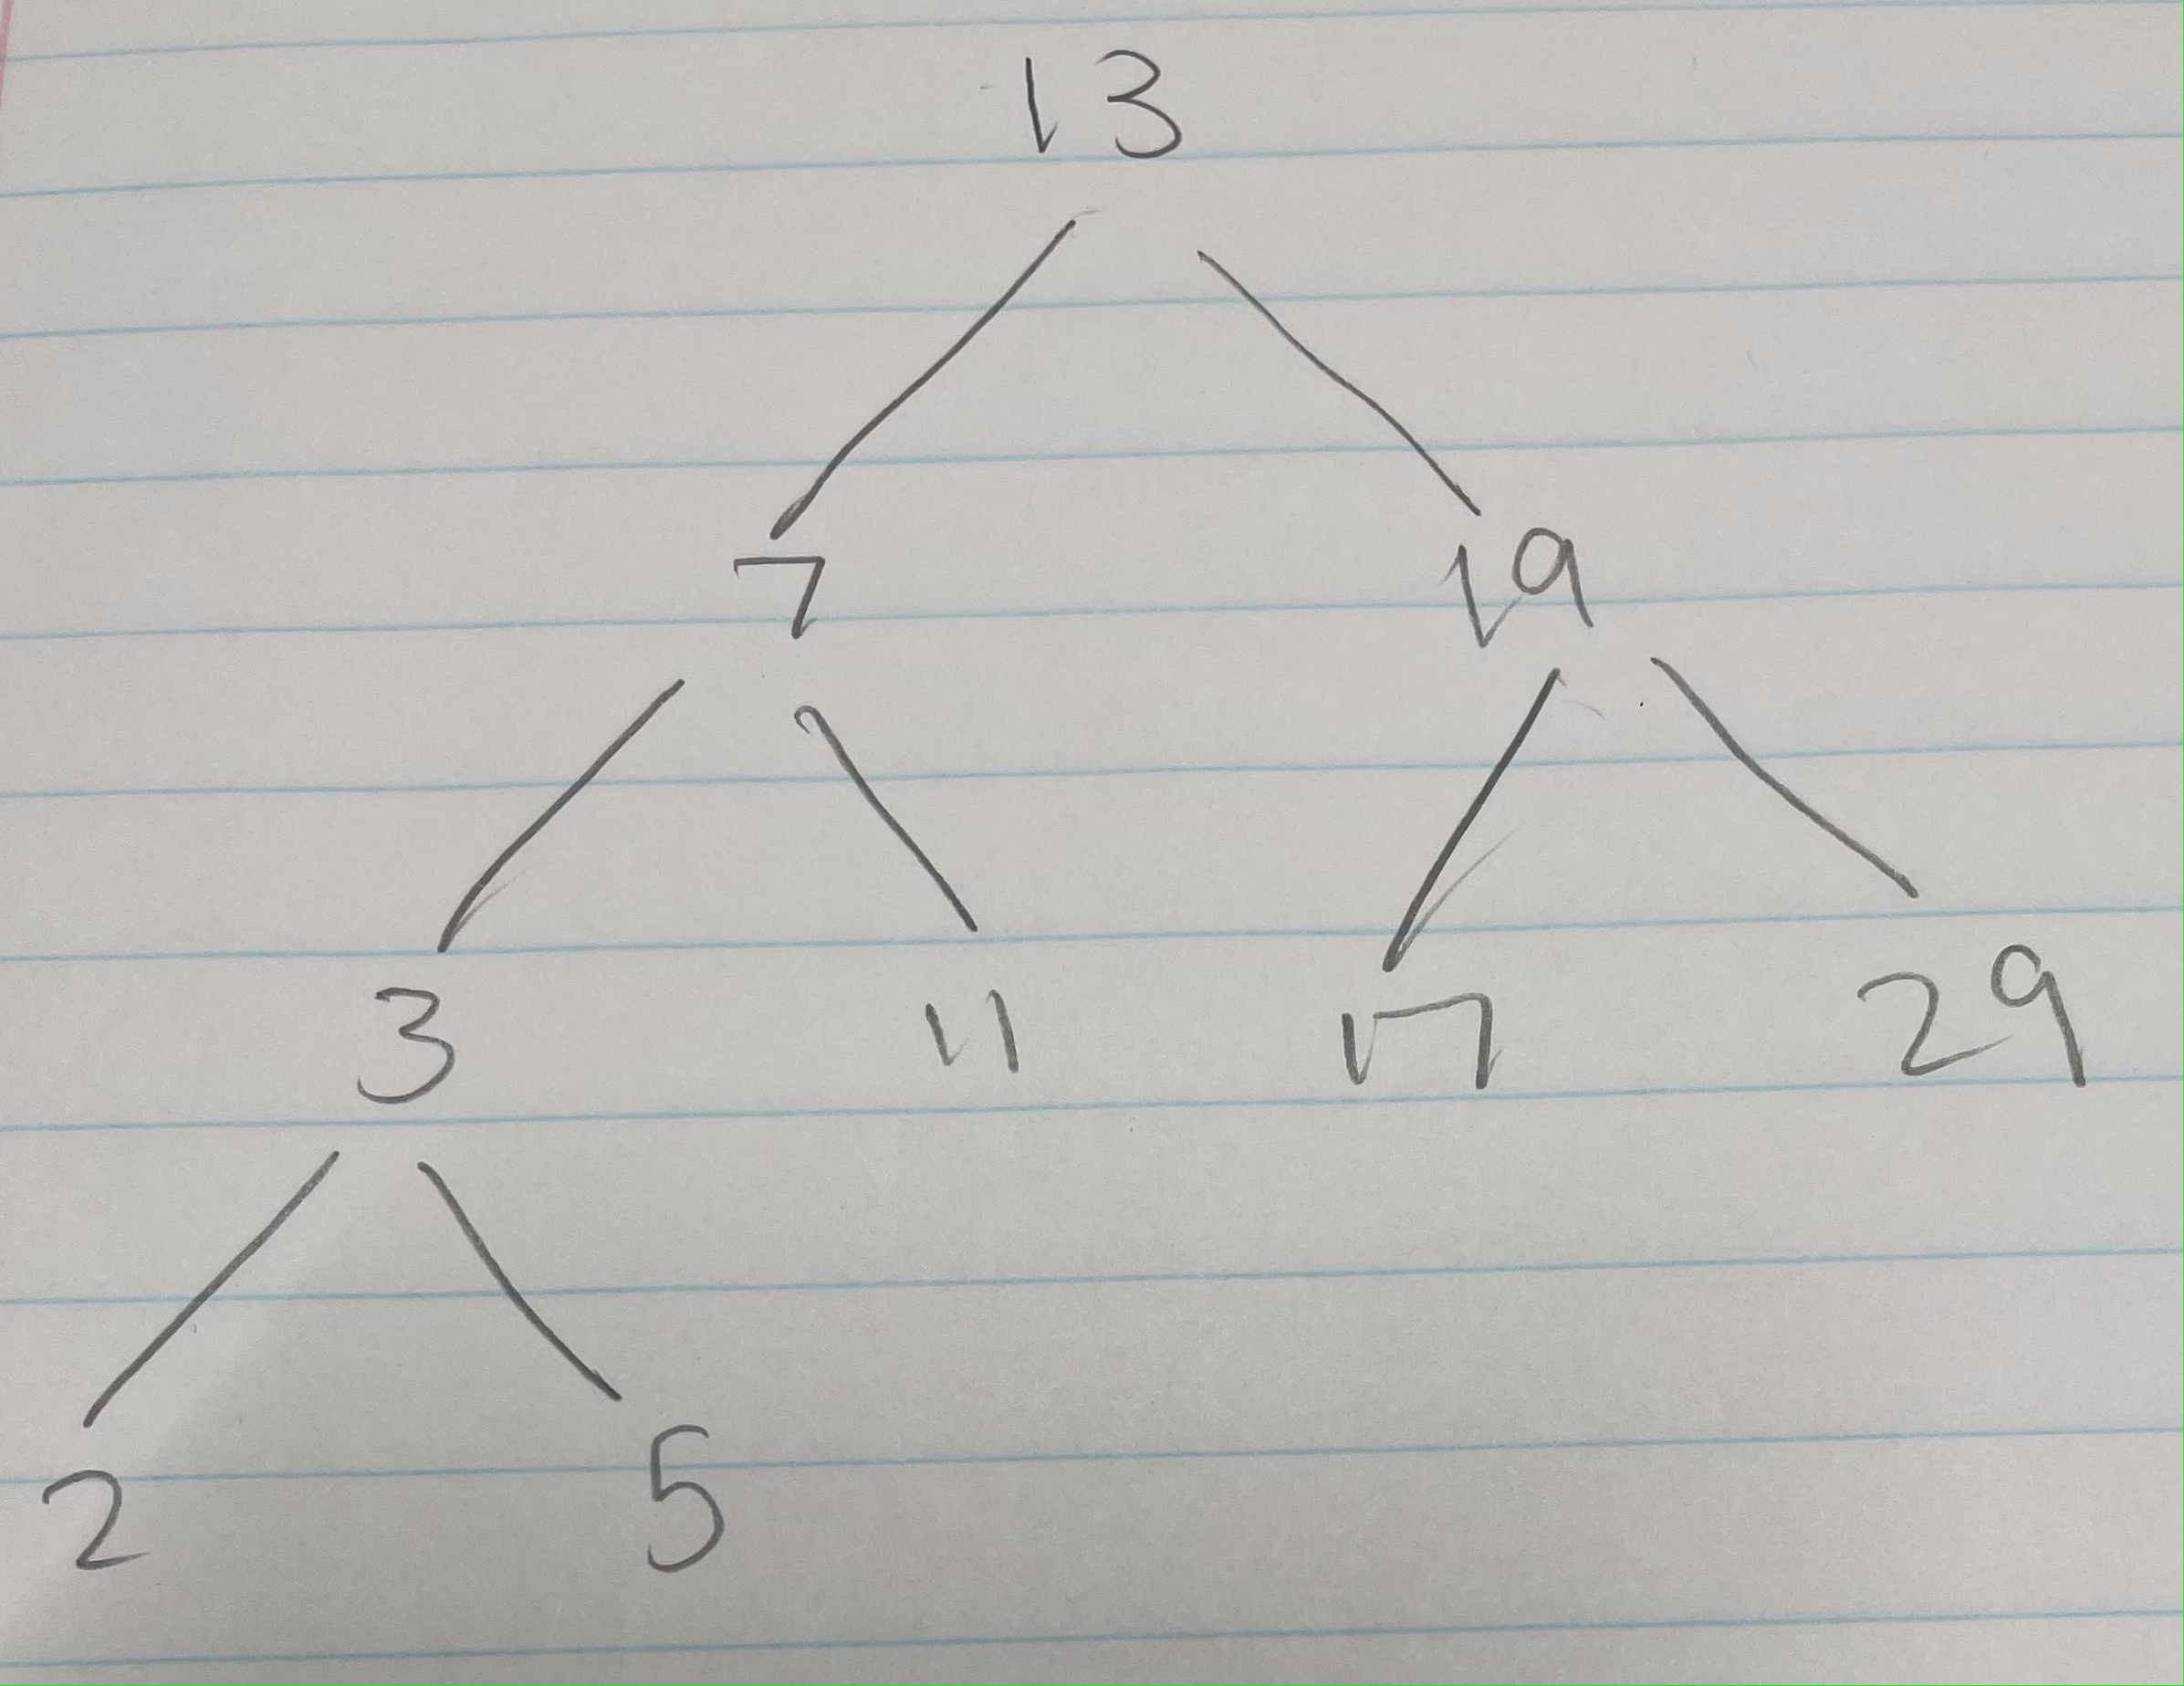 13
7 19
3 11 17 29
2 5